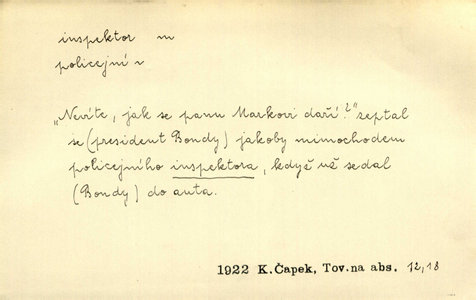 inspektor m
policejní v
„Nevíte, jak se panu Markovi daří?“ zeptal
se (president Bondy) jakoby mimochodem
policejního inspektora, když už sedal
(Bondy) do auta.
1922 K.Čapek, Tov.na abs. 12,18